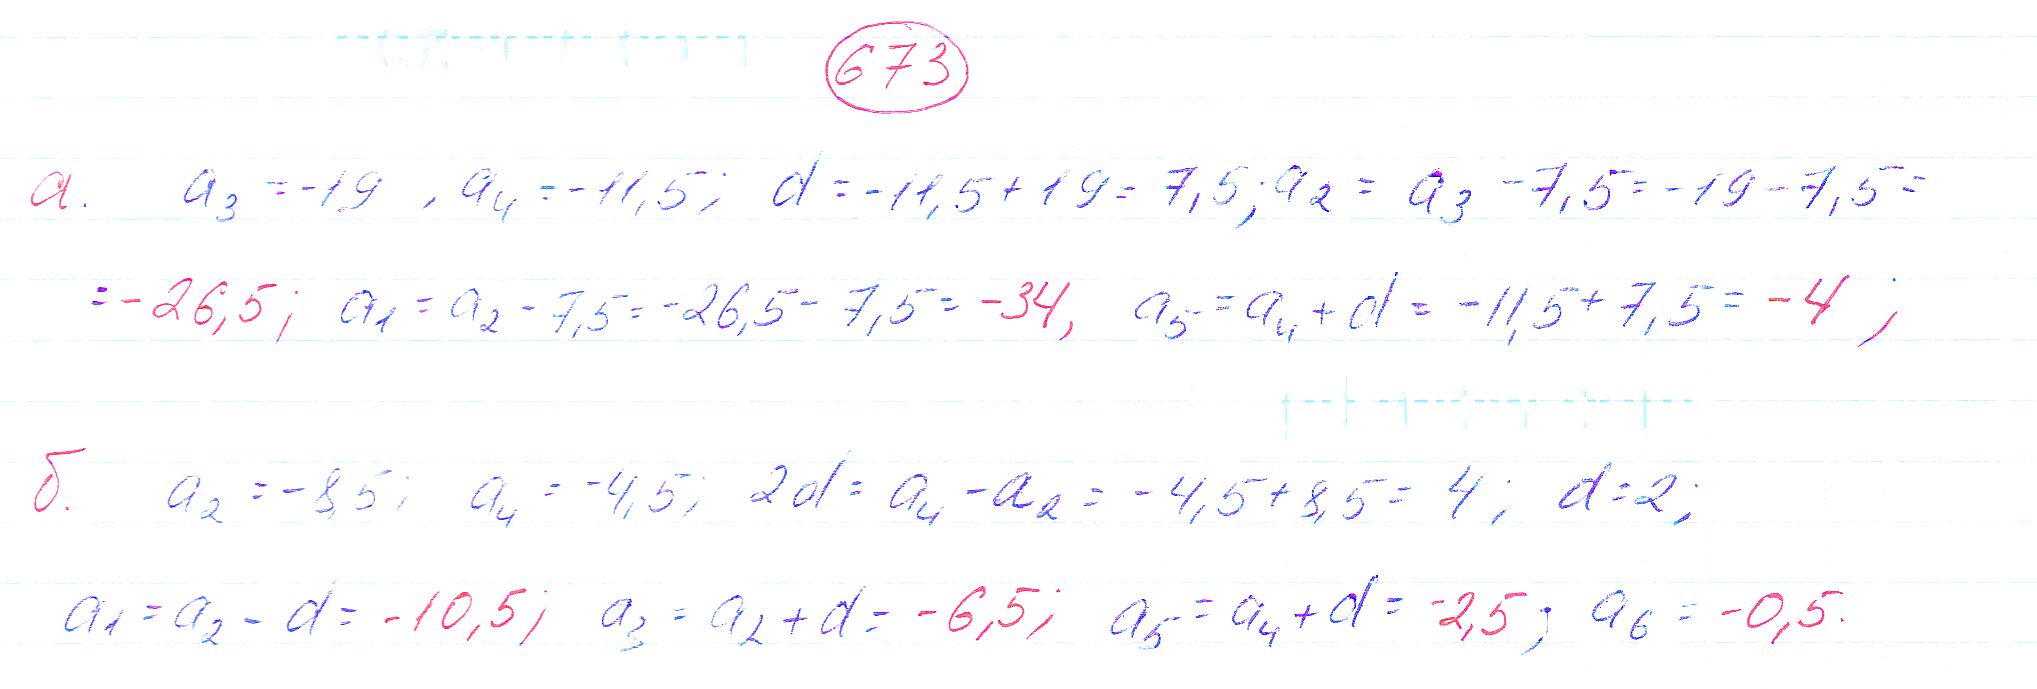 673
а. a₃ = -19, a₄ = -11,5; d = -11,5 + 19 = 7,5; a₂ = a₃ - 7,5 = -19 - 7,5 =
= -26,5; a₁ = a₂ - 7,5 = -26,5 - 7,5 = -34, a₅ = a₄ + d = -11,5 + 7,5 = -4;
б. a₂ = -8,5; a₄ = -4,5; 2d = a₄ - a₂ = -4,5 + 8,5 = 4; d = 2;
a₁ = a₂ - d = -10,5; a₃ = a₂ + d = -6,5; a₅ = a₄ + d = -2,5; a₆ = -0,5.